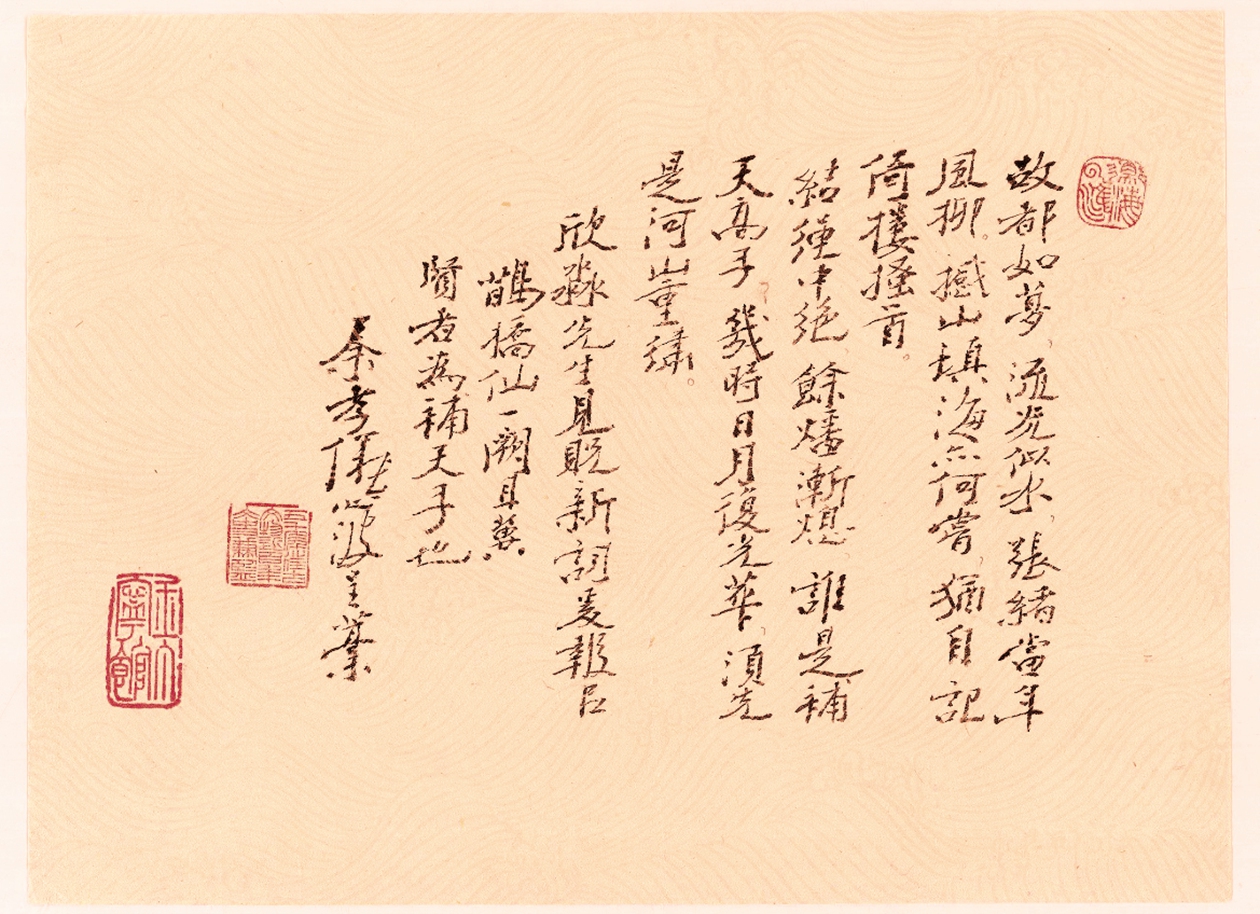 故都如夢，流光似水，張緒當年
風柳。撼山鎮海亦何嘗，猶自記
倚樓搔首。
結中絕，餘燔漸熄，誰是補
天高手 幾時日月復光華，須先
是河山重繡。
欣淼先生見貺新詞爰報以
鵲橋仙一闋且冀
賢者為補天手也
秦孝儀心波呈藁
玉丁寧館